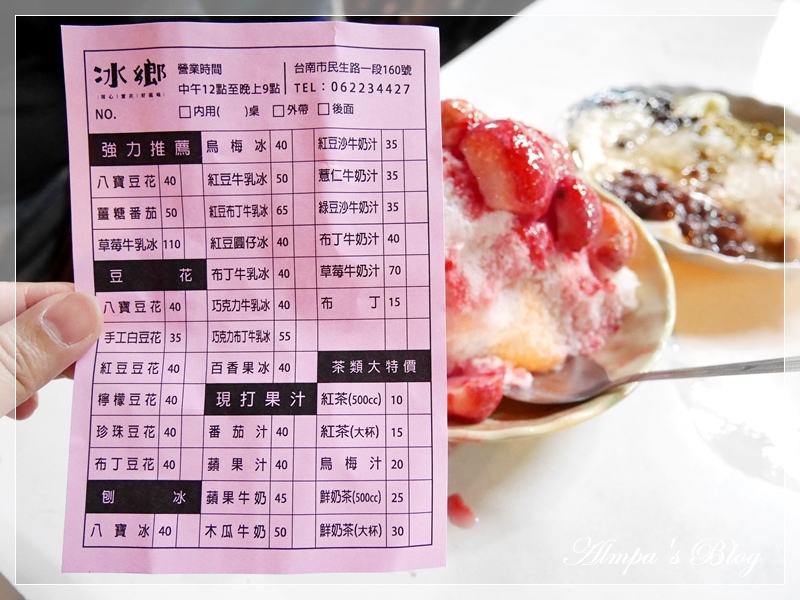 冰鄉
營業時間
中午12點至晚上9點
台南市民生路一段160號
TEL：062234427
NO.
□内用( )桌 □外帶 □後面
強力推薦
八寶豆花 40
薑糖番茄 50
草莓牛乳冰 110
豆花
八寶豆花 40
手工白豆花 35
紅豆豆花 40
檸檬豆花 40
珍珠豆花 40
布丁豆花 40
刨冰
八寶冰 40
烏梅冰 40
紅豆牛乳冰 50
紅豆布丁牛乳冰 65
紅豆圓仔冰 40
布丁牛乳冰 40
巧克力牛乳冰 40
巧克力布丁牛乳冰 55
百香果冰 40
現打果汁
番茄汁 40
蘋果汁 40
蘋果牛奶 45
木瓜牛奶 50
紅豆沙牛奶汁 35
薏仁牛奶汁 35
綠豆沙牛奶汁 35
布丁牛奶汁 40
草莓牛奶汁 70
布丁 15
茶類大特價
紅茶(500cc) 10
紅茶(大杯) 15
烏梅汁 20
鮮奶茶(500cc) 25
鮮奶茶(大杯) 30
Almpa's Blog